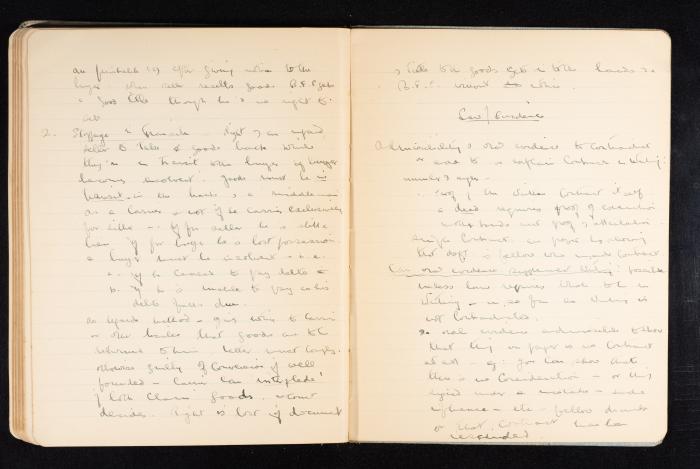 after giving notice to the
buyer when seller resells goods. B.F.P. gets
a good title though he has no right to
sell
2. Stoppage in Transit - right of an unpaid
seller to take goods back while
they're in transit when buyer
becomes insolvent. goods must be in
transit in the hands of a middleman
as a carrier - not if he carries exclusively
for either - if for seller he is still
if for buyer he has lost possession
& buyer must be insolvent - i.e.
a. if he ceased to pay debts or
b. if he is unable to pay as his
debts falls due.
as regards method - give notice to carrier
or other bailee that goods are to be
returned to him, latter must comply.
otherwise guilty of conversion if well
founded - Carrier can interplead
if both claim goods. & court
decides. Right is lost if document
of title to the goods gets into the hands of a
B.F.P. without notice
Law of Evidence
Admissibility of oral evidence to contradict
or add to or explain Contract in Writing:
Proof of the written contract itself
a deed requires proof of execution
not proof of attestation
Simple Contract. on proof by showing
that deft is fellow who made contract
Can oral evidence supplement writing? possible
unless law requires whole to be in
Writing - in so far as writing is
not contradicted.
oral evidence admissible to show
that thing on paper is no contract
at all - eg: you can show that
there is no Consideration - or thing
signed under a mistake - undue
influence - etc - fellow
or that contract has been
rescinded.